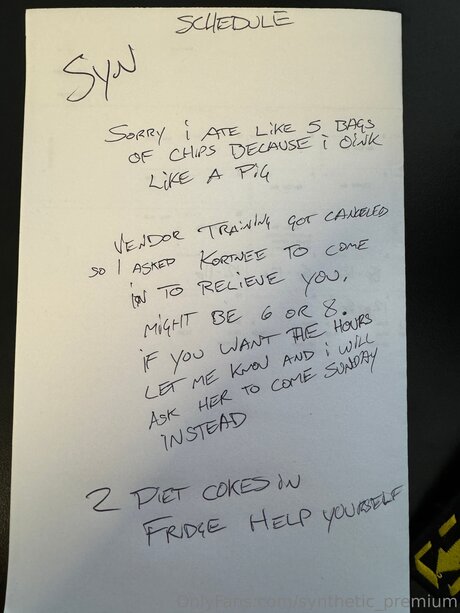 SCHEDULE
SYN
SORRY i ATE LIKE 5 BAGS
OF CHIPS BECAUSE i OINK
LIKE A PiG
VENDOR TRAiNiNG GOT CANCELED
SO I ASKED KORTNEE TO COME
iN TO RELIEVE YOU.
MiGHT BE 6 OR 8.
iF YOU WANT THE HOURS
LET ME KNOW AND i WiLL
ASK HER TO COME SUNDAY
iNSTEAD
2 DIET COKES iN
FRIDGE HELP YOURSELF
OnlyFans.com/synthetic_premium